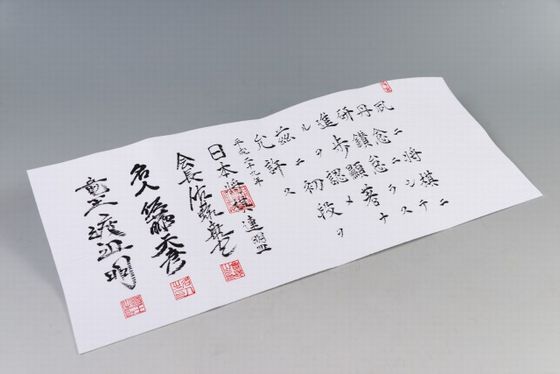 夙ニ将棋ニ
丹念ニシテ
研鑽怠ラス
進歩顕著ナ
ルヲ認メ
茲ニ初段ヲ
允許ス
平成二十九年
日本将棋連盟
会長 佐藤康光
名人 佐藤天彦
竜王 渡辺明